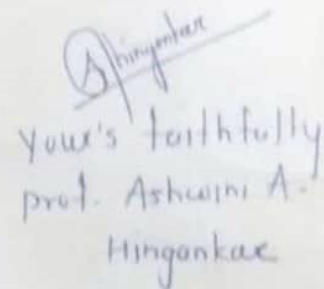 AHingonkar
Your's faithfully
prof. Ashwini A.
Hingonkar